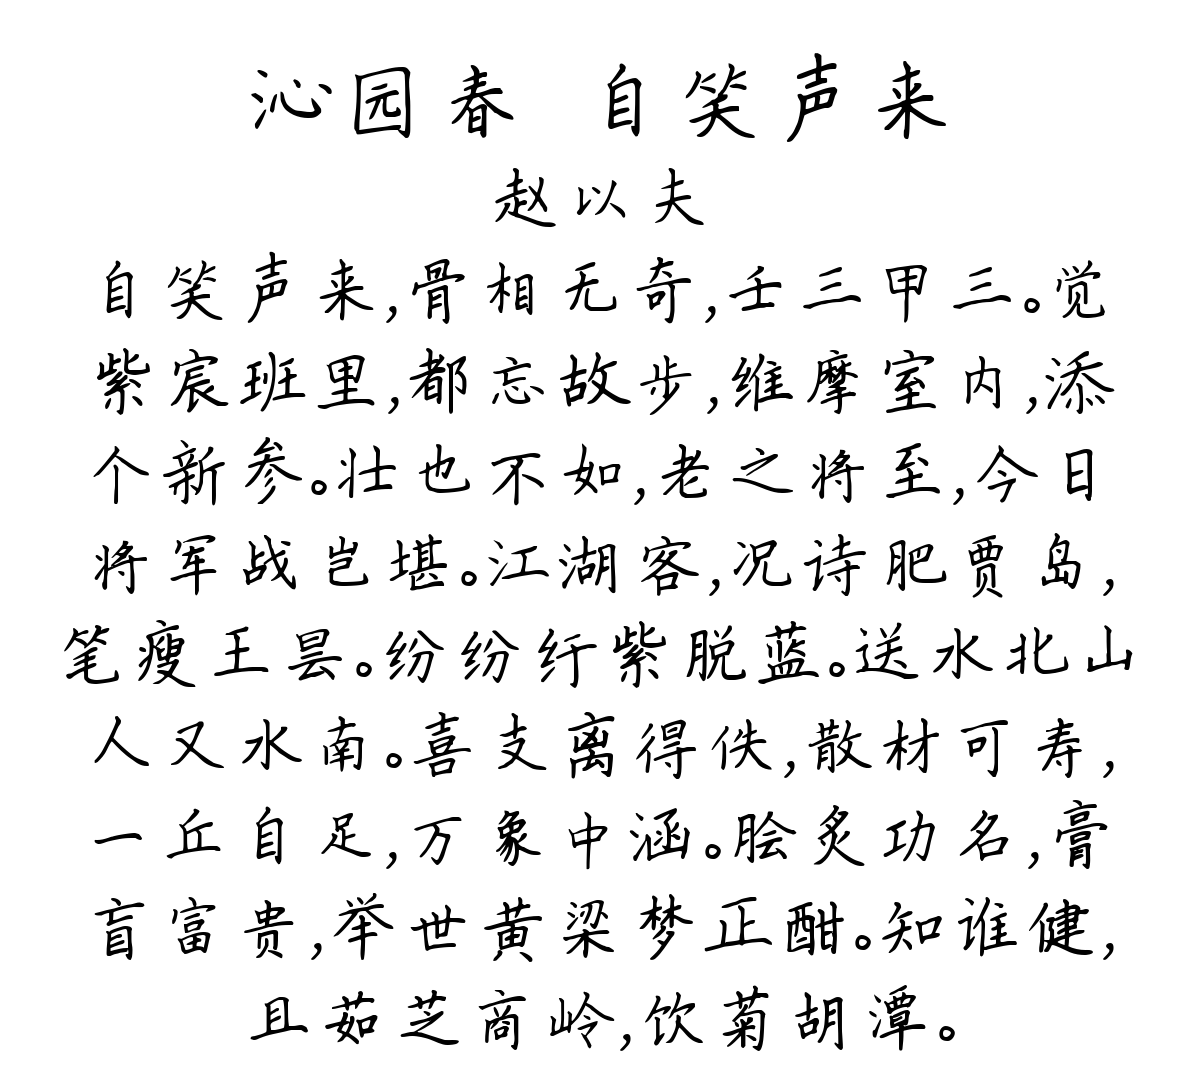 沁园春 自笑声来
赵以夫
自笑声来,骨相无奇,壬三甲三。觉
紫宸班里,都忘故步,维摩室内,添
个新参。壮也不如,老之将至,今日
将军战岂堪。江湖客,况诗肥贾岛,
笔瘦王昙。纷纷纡紫脱蓝。送水北山
人又水南。喜支离得佚,散材可寿,
一丘自足,万象中涵。脍炙功名,膏
盲富贵,举世黄梁梦正酣。知谁健,
且茹芝商岭,饮菊胡潭。